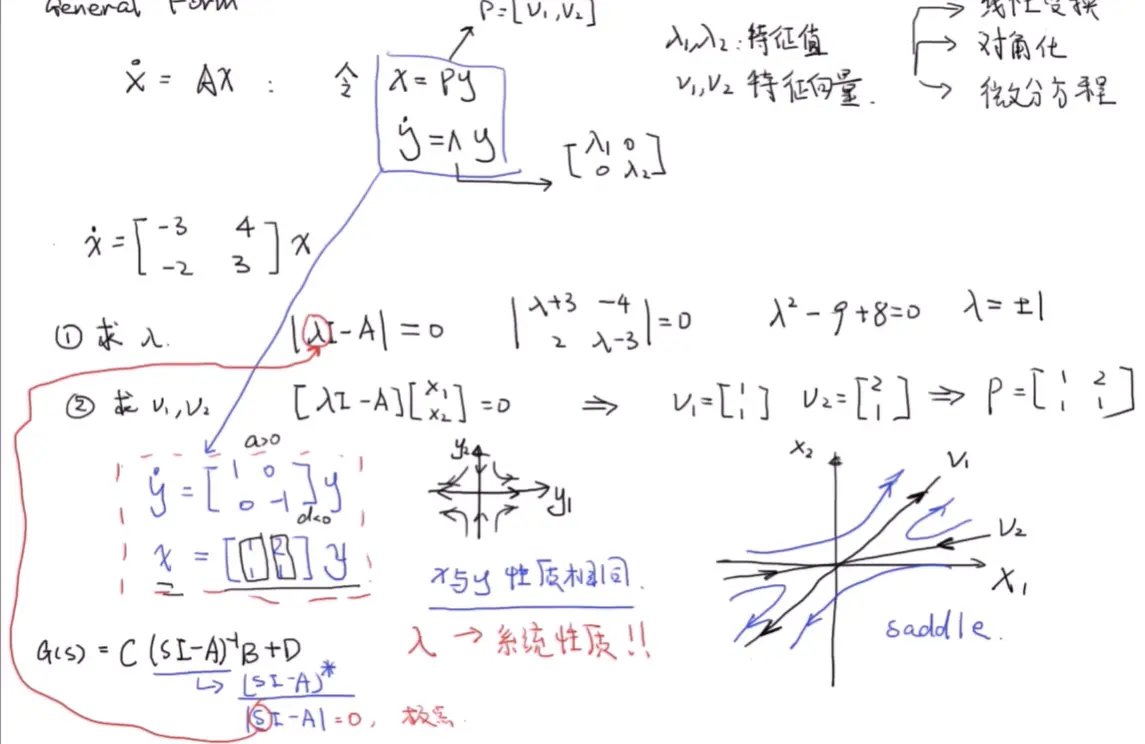 General Form
P=[v₁,v₂]
ẋ = Ax : 令 x = Py
ẏ = Λ y
[λ₁ 0
0 λ₂]
λ₁,λ₂: 特征值
v₁,v₂ 特征向量.
→ 线性变换
→ 对角化
→ 微分方程
ẋ = [-3 4
-2 3] x
① 求 λ. |λI-A| = 0 |λ+3 -4
2 λ-3| = 0 λ²-9+8=0 λ=±1
② 求 v₁,v₂ [λI-A][x₁
x₂] = 0 ⇒ v₁=[1
1] v₂=[2
1] ⇒ P=[1 2
1 1]
a>0
ẏ = [1 0
0 -1] y
d<0
x = [1 2
1 1] y
y₂
y₁
x与y 性质相同.
λ → 系统性质!!
x₂
v₁
v₂
x₁
saddle.
G(s) = C (sI-A)⁻¹B+D
↳ (sI-A)*
|sI-A|=0, 极点.